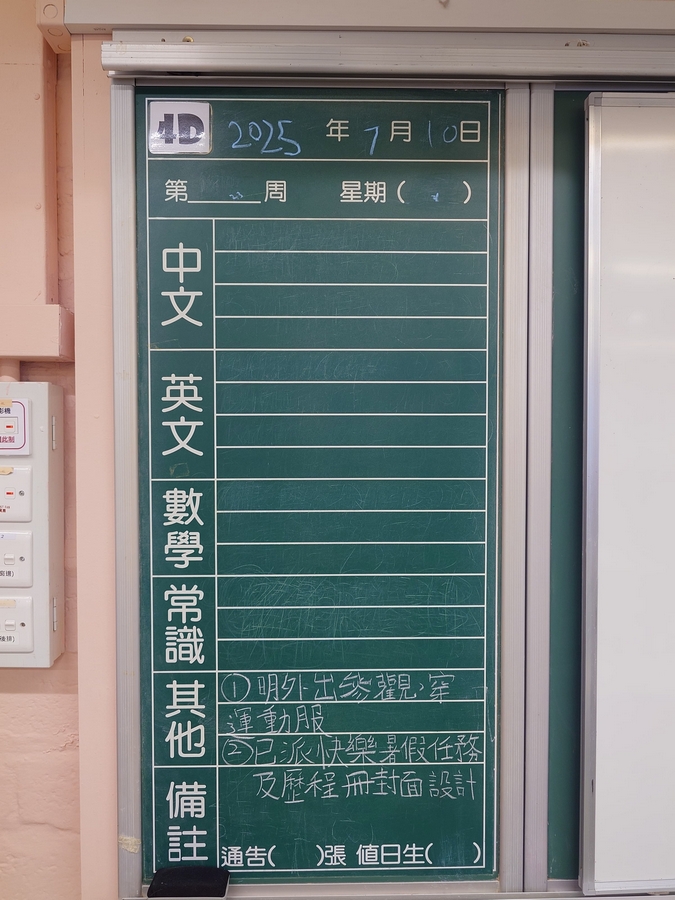 4D 2025 年 7 月 10 日
第 周 星期( )
中文
英文
數學
常識
其他
①明外出參觀,穿
運動服
②已派快樂暑假任務
及歷程冊封面設計
備註
通告( )張 值日生( )